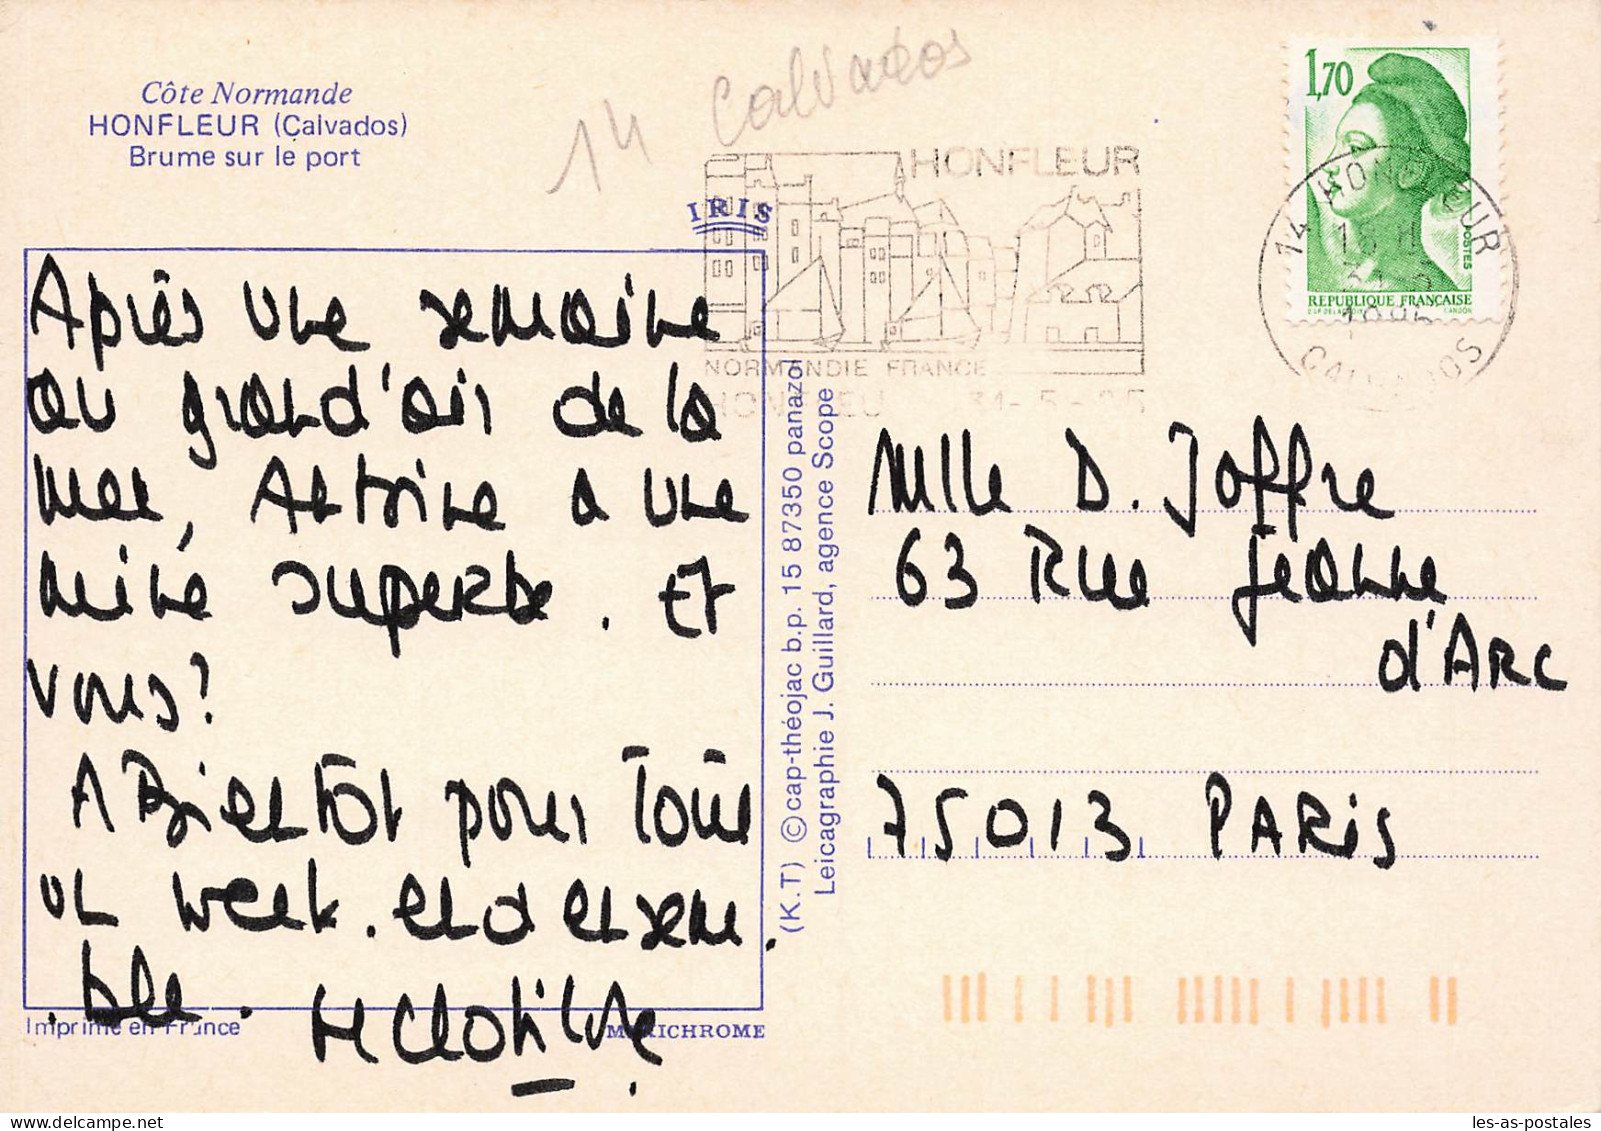 Côte Normande
HONFLEUR (Calvados)
Brume sur le port
14 Calvados
IRIS
HONFLEUR
NORMANDIE FRANCE
31-5-85
1,70
POSTES
REPUBLIQUE FRANÇAISE
GANDON
14 HONFLEUR
CALVADOS
Après une semaine
au grand'air de la
mer, Antoine a une
mine superbe. Et
vous?
A Bientôt pour Tout
un week.end ensem
.ble.
Clotilde
(K.T) © cap-théojac b.p. 15 87350 panazol
Leicagraphie J. Guillard, agence Scope
Mlle D. Joffre
63 Rue Jeanne
d'Arc
75013 PARIS
Imprimé en France
MEXICHROME
les-as-postales